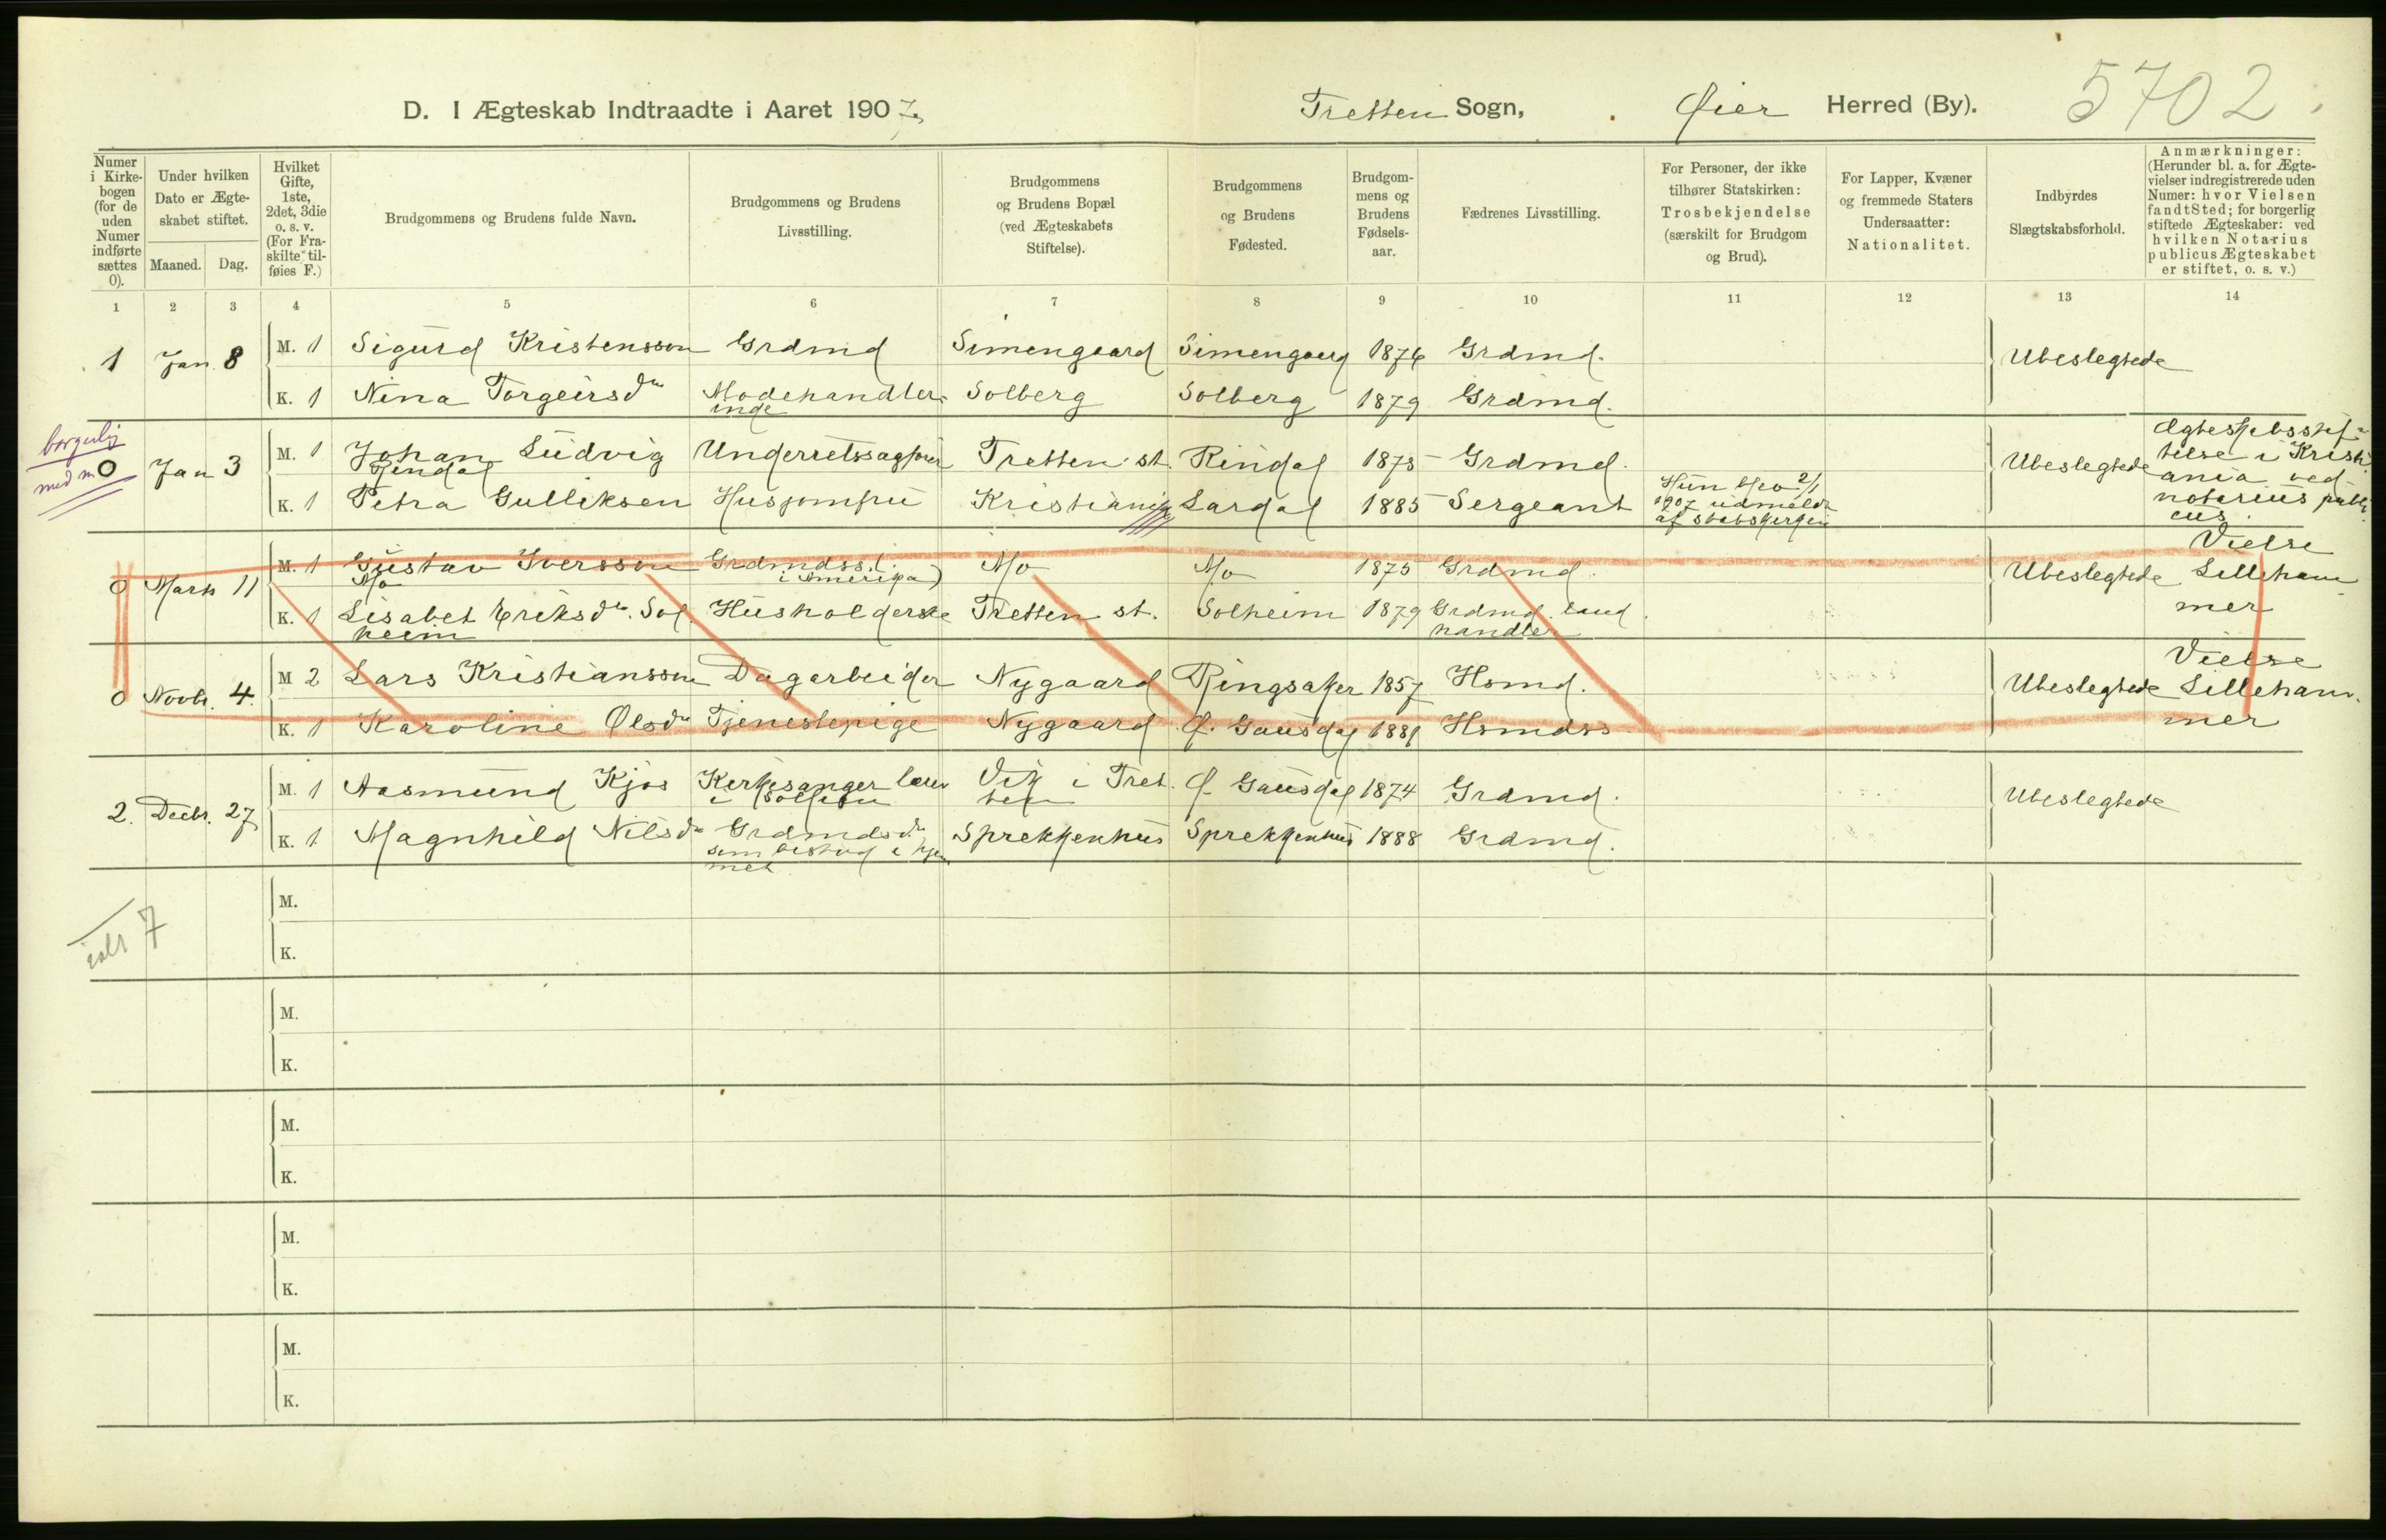 5702
D. I Ægteskab Indtraadte i Aaret 1907. Tretten Sogn, Øier Herred (By).
Numer i Kirkebogen (for de uden Numer indførte sættes 0).
Under hvilken Dato er Ægteskabet stiftet.
Maaned. Dag.
Hvilket Gifte, 1ste, 2det, 3die o. s. v. (For Fraskilte tilføies F.)
Brudgommens og Brudens fulde Navn.
Brudgommens og Brudens Livsstilling.
Brudgommens og Brudens Bopæl (ved Ægteskabets Stiftelse).
Brudgommens og Brudens Fødested.
Brudgommens og Brudens Fødselsaar.
Fædrenes Livsstilling.
For Personer, der ikke tilhører Statskirken: Trosbekjendelse (særskilt for Brudgom og Brud).
For Lapper, Kvæner og fremmede Staters Undersaatter: Nationalitet.
Indbyrdes Slægtskabsforhold.
Anmærkninger: (Herunder bl. a. for Ægtevielser indregistrerede uden Numer: hvor Vielsen fandt Sted; for borgerlig stiftede Ægteskaber: ved hvilken Notarius publicus Ægteskabet er stiftet, o. s. v.)
1 2 3 4 5 6 7 8 9 10 11 12 13 14
1 Jan. 8 M. 1 Sigurd Kristensson Grdmd Simengaard Simengaard 1876 Grdmd. Ubeslegtede
K. 1 Nina Torgeirsdr Modehandlerinde Solberg Solberg 1879 Grdmd.
borgerlig
med m
0 Jan 3 M. 1 Johan Ludvig Rindal Underretssagfører Tretten st. Rindal 1875 Grdmd. Ubeslegtede Ægteskabsstiftelse i Kristiania ved notarius publicus
K. 1 Petra Gulliksen Husjomfru Kristiania Lardal 1885 Sergeant Hun blev 2/1 1907 udmeldt af statskirken
0 Marts 11 M. 1 Gustav Iversson Mo Grdmdss. (i Amerika) Mo Mo 1875 Grdmd. Ubeslegtede Vielse Lillehammer
K. 1 Lisabet Eriksdr. Solheim Husholderske Tretten st. Solheim 1879 Grdmd. landhandler
0 Novbr. 4. M 2 Lars Kristiansson Dagarbeider Nygaard Ringsaker 1857 Hsmd. Ubeslegtede Vielse Lillehammer
K. 1 Karoline Olsdr Tjenestepige Nygaard Ø. Gausdal 1881 Hsmdss
2. Decbr. 27 M. 1 Aasmund Kjos Kirkesanger lærer i Solheim Vik i Tretten Ø. Gausdal 1874 Grdmd. Ubeslegtede
K. 1 Magnhild Nilsdr Grdmdsdr som bistod i hjemmet Sprekkenhus Sprekkenhus 1888 Grdmd.
ialt 7
M.
K.
M.
K.
M.
K.
M.
K.
M.
K.